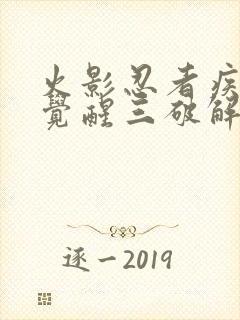 火影忍者疾
覺醒三破解
逐一2019